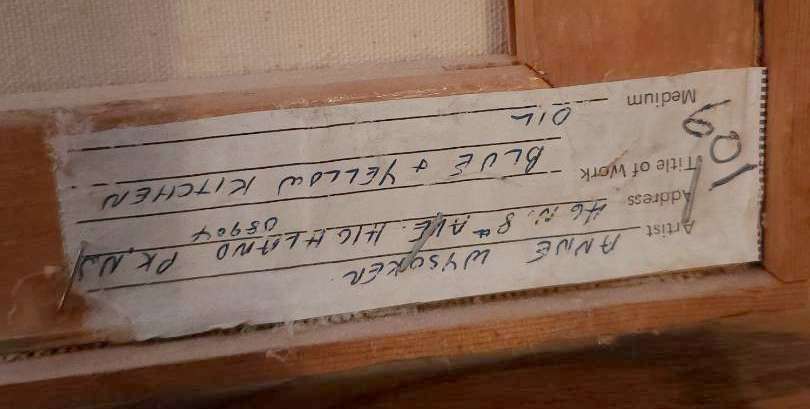 Artist ANNE WYSOCKER
Address 46 N. 8th AVE. HIGHLAND PK, NJ
08904
Title of Work BLUE & YELLOW KITCHEN
Medium OIL
109